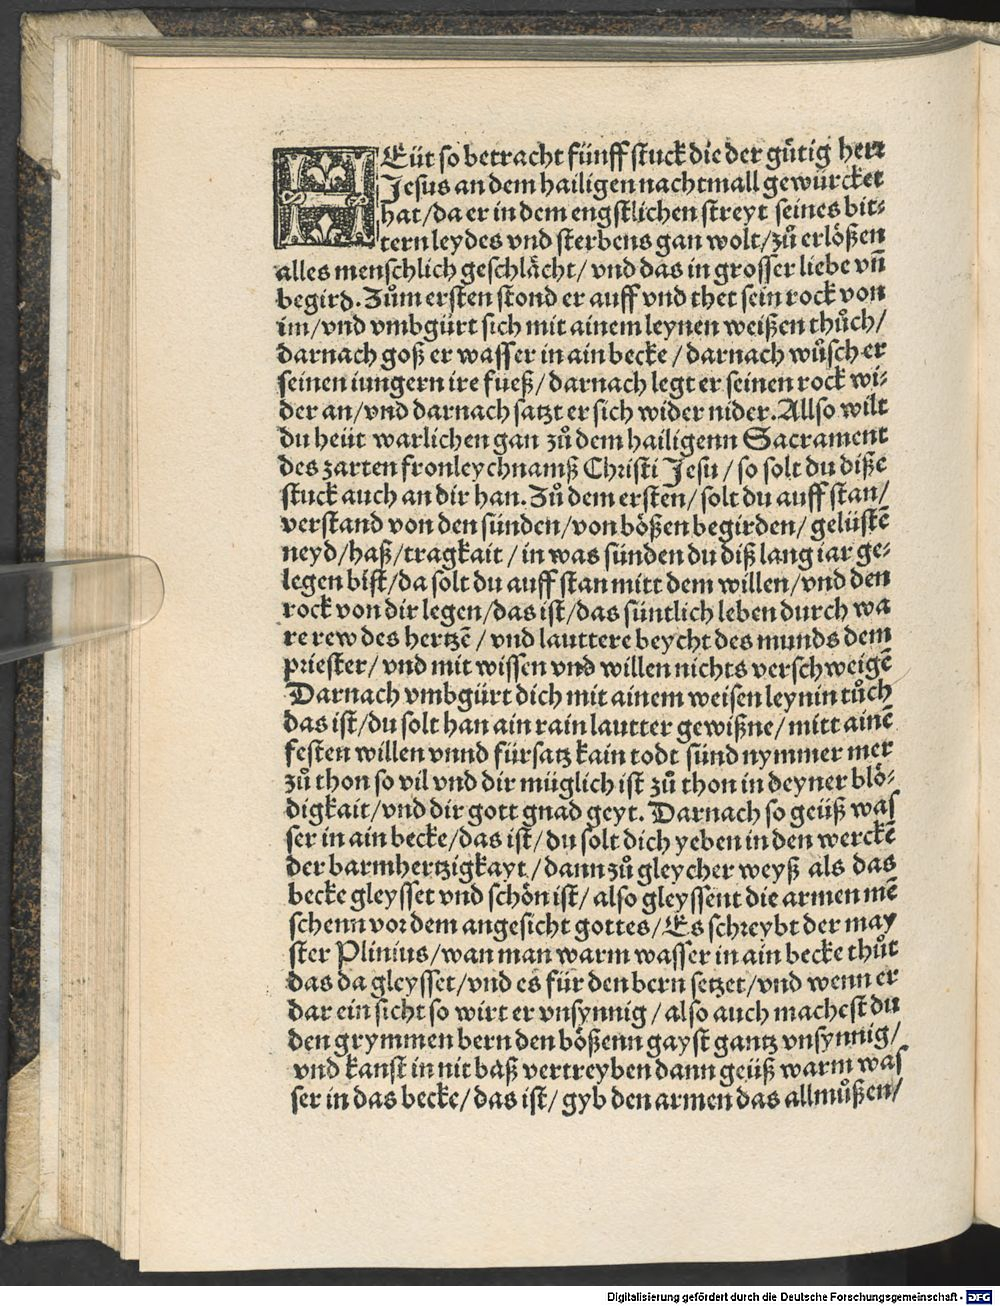 HEüt so betracht fünff stuck die der gůtig herr
Jesus an dem hailigen nachtmall gewürcket
hat/da er in dem engstlichen streyt seines bit⸗
tern leydes vnd sterbens gan wolt/zů erlößen
alles menschlich geschlächt/ vnd das in grosser liebe vñ
begird. Zům ersten stond er auff vnd thet sein rock von
im/vnd vmbgürt sich mit ainem leynen weißen thůch/
darnach goß er wasser in ain becke/ darnach wůsch er
seinen iungern ire fueß/ darnach legt er seinen rock wi⸗
der an/vnd darnach satzt er sich wider nider. Allso wilt
du heüt warlichen gan zů dem hailigenn Sacrament
des zarten fronleychnamß Christi Jesu/ so solt du diße
stuck auch an dir han. Zů dem ersten/ solt du auff stan/
verstand von den sünden/von bößen begirden/ gelüstē
neyd/haß/tragkait/ in was sünden du diß lang iar ge⸗
legen bist/da solt du auff stan mitt dem willen/vnd den
rock von dir legen/das ist/das süntlich leben durch wa
re rew des hertzē/ vnd lauttere beycht des munds dem
priester/ vnd mit wissen vnd willen nichts verschweigē
Darnach vmbgürt dich mit ainem weisen leynin tůch
das ist/du solt han ain rain lautter gewißne/ mitt ainē
festen willen vnnd fürsatz kain todt sünd nymmer mer
zů thon so vil vnd dir müglich ist zů thon in deyner blö⸗
digkait/vnd dir gott gnad geyt. Darnach so geüß was
ser in ain becke/das ist/ du solt dich yeben in den werckē
der barmhertzigkayt/ dann zů gleycher weyß als das
becke gleysset vnd schön ist/ also gleyssent die armen mē
schenn vor dem angesicht gottes/ Es schreybt der may
ster Plinius/wan man warm wasser in ain becke thůt
das da gleysset/vnd es für den bern setzet/vnd wenn er
dar ein sicht so wirt er vnsynnig/ also auch machest du
den grymmen bern den bößenn gayst gantz vnsynnig/
vnd kanst in nit baß vertreyben dann geüß warm was
ser in das becke/ das ist/ gyb den armen das allmůßen/
Digitalisierung gefördert durch die Deutsche Forschungsgemeinschaft - DFG